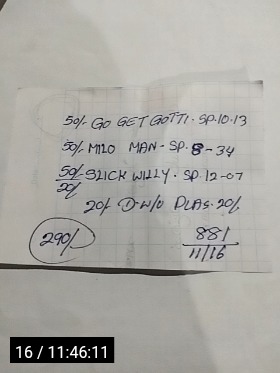 50/- GO GET GOTTI. SP. 10-13
50/- MILO MAN - SP. 8 - 34
50/- SLICK WILLY. SP. 12-07
20/
20/ D-W/U PLAS. 20/
290/-
881
11/16
16 / 11:46:11